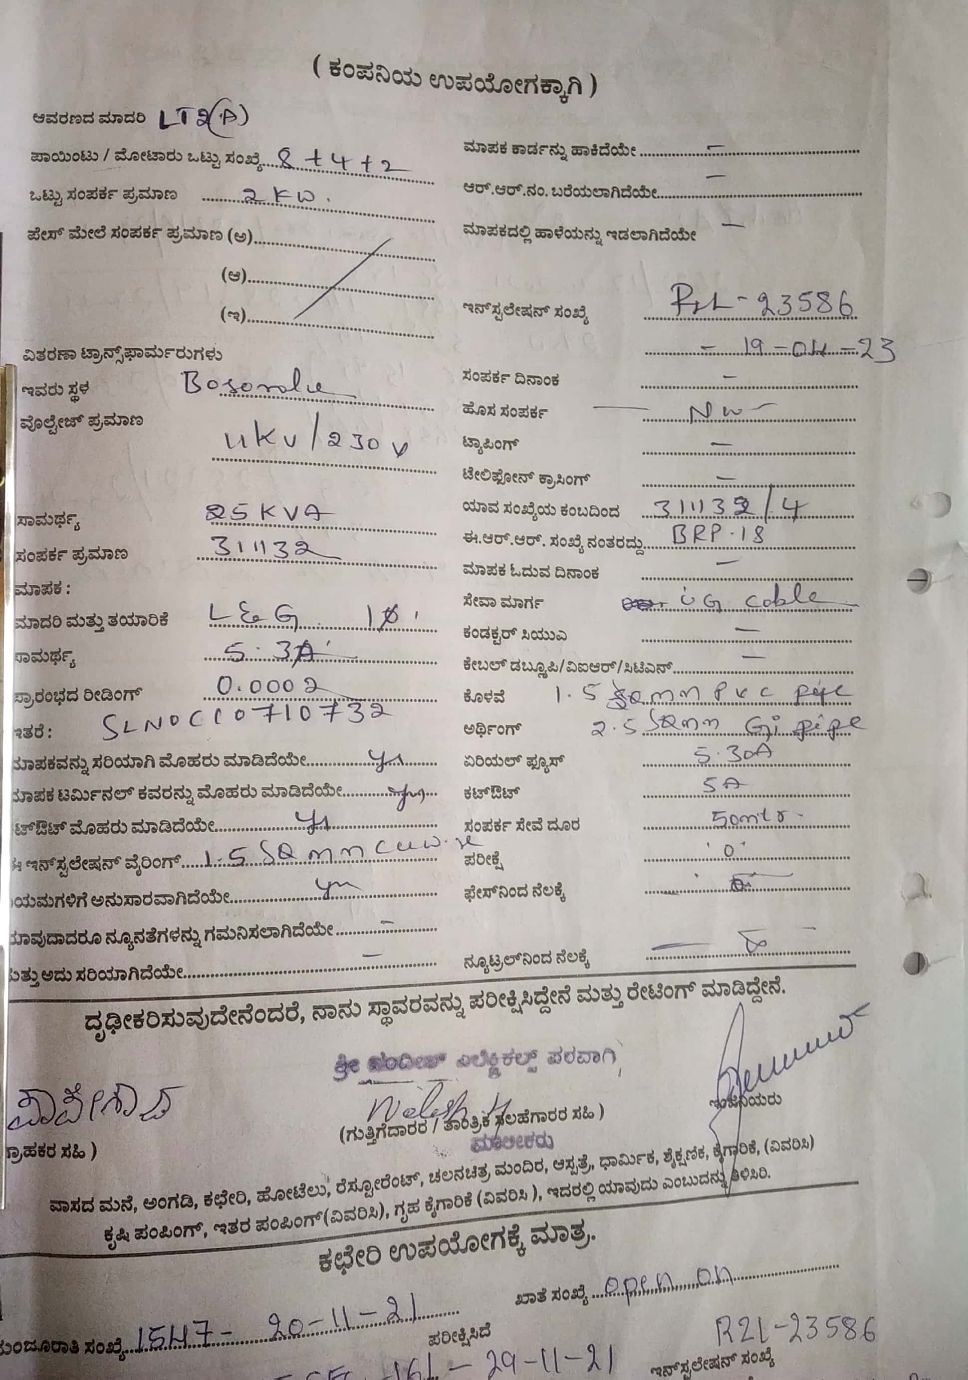 ( ಕಂಪನಿಯ ಉಪಯೋಗಕ್ಕಾಗಿ )
ಆವರಣದ ಮಾದರಿ LT2(A)
ಪಾಯಿಂಟು / ಮೋಟಾರು ಒಟ್ಟು ಸಂಖ್ಯೆ 8+4+2
ಒಟ್ಟು ಸಂಪರ್ಕ ಪ್ರಮಾಣ 2 KW.
ಪೇಸ್ ಮೇಲೆ ಸಂಪರ್ಕ ಪ್ರಮಾಣ (ಅ)
(ಆ)
(ಇ)
ವಿತರಣಾ ಟ್ರಾನ್ಸ್‌ಫಾರ್ಮರುಗಳು
ಇವರು ಸ್ಥಳ
ವೊಲ್ಟೇಜ್ ಪ್ರಮಾಣ
11KV/230V
ಸಾಮರ್ಥ್ಯ 25KVA
ಸಂಪರ್ಕ ಪ್ರಮಾಣ 311132
ಮಾಪಕ :
ಮಾದರಿ ಮತ್ತು ತಯಾರಿಕೆ L&G 1Φ
ಸಾಮರ್ಥ್ಯ 5.30A
ಪ್ರಾರಂಭದ ರೀಡಿಂಗ್ 0.0002
ಇತರೆ : SLNOCC0710732
ಮಾಪಕವನ್ನು ಸರಿಯಾಗಿ ಮೊಹರು ಮಾಡಿದೆಯೇ Yes
ಮಾಪಕ ಟರ್ಮಿನಲ್ ಕವರನ್ನು ಮೊಹರು ಮಾಡಿದೆಯೇ Yes
ಕಟ್‌ಔಟ್ ಮೊಹರು ಮಾಡಿದೆಯೇ Yes
ಈ ಇನ್‌ಸ್ಟಲೇಷನ್ ವೈರಿಂಗ್ 1.5 SQ mm cu wire
ನಿಯಮಗಳಿಗೆ ಅನುಸಾರವಾಗಿದೆಯೇ Yes
ಯಾವುದಾದರೂ ನ್ಯೂನತೆಗಳನ್ನು ಗಮನಿಸಲಾಗಿದೆಯೇ –
ಮತ್ತು ಅದು ಸರಿಯಾಗಿದೆಯೇ –
ಮಾಪಕ ಕಾರ್ಡನ್ನು ಹಾಕಿದೆಯೇ –
ಆರ್.ಆರ್.ನಂ. ಬರೆಯಲಾಗಿದೆಯೇ –
ಮಾಪಕದಲ್ಲಿ ಹಾಳೆಯನ್ನು ಇಡಲಾಗಿದೆಯೇ –
ಇನ್‌ಸ್ಟಲೇಷನ್ ಸಂಖ್ಯೆ RZL-23586
- 19-04-23
ಸಂಪರ್ಕ ದಿನಾಂಕ –
ಹೊಸ ಸಂಪರ್ಕ – New –
ಟ್ಯಾಪಿಂಗ್ –
ಟೇಲಿಫೋನ್ ಕ್ರಾಸಿಂಗ್ –
ಯಾವ ಸಂಖ್ಯೆಯ ಕಂಬದಿಂದ 311132/4
ಈ.ಆರ್.ಆರ್. ಸಂಖ್ಯೆ ನಂತರದ್ದು BRP.18
ಮಾಪಕ ಓದುವ ದಿನಾಂಕ –
ಸೇವಾ ಮಾರ್ಗ UG cable
ಕಂಡಕ್ಟರ್ ಸಿಯುಎ –
ಕೇಬಲ್ ಡಬ್ಲ್ಯೂಪಿ/ವಿಐಆರ್/ಸಿಟಿಎಸ್ –
ಕೊಳವೆ 1.5 SQ mm PVC pipe
ಅರ್ಥಿಂಗ್ 2.5 SQ mm Gi pipe
ಏರಿಯಲ್ ಫ್ಯೂಸ್ 5.30A
ಕಟ್‌ಔಟ್ 5A
ಸಂಪರ್ಕ ಸೇವೆ ದೂರ 50mtr.
ಪರೀಕ್ಷೆ '0'
ಫೇಸ್‌ನಿಂದ ನೆಲಕ್ಕೆ
ನ್ಯೂಟ್ರಲ್‌ನಿಂದ ನೆಲಕ್ಕೆ
ದೃಢೀಕರಿಸುವುದೇನೆಂದರೆ, ನಾನು ಸ್ಥಾವರವನ್ನು ಪರೀಕ್ಷಿಸಿದ್ದೇನೆ ಮತ್ತು ರೇಟಿಂಗ್ ಮಾಡಿದ್ದೇನೆ.
ಶ್ರೀ ನಂದೀಶ್ ಎಲೆಕ್ಟ್ರಿಕಲ್ಸ್ ಪರವಾಗಿ
ಗ್ರಾಹಕರ ಸಹಿ )
(ಗುತ್ತಿಗೆದಾರರ / ತಾಂತ್ರಿಕ ಸಲಹೆಗಾರರ ಸಹಿ )
ಮಾಲೀಕರು
ಇಂಜಿನಿಯರು
ವಾಸದ ಮನೆ, ಅಂಗಡಿ, ಕಛೇರಿ, ಹೋಟೆಲು, ರೆಸ್ಟೋರೆಂಟ್, ಚಲನಚಿತ್ರ ಮಂದಿರ, ಆಸ್ಪತ್ರೆ, ಧಾರ್ಮಿಕ, ಶೈಕ್ಷಣಿಕ, ಕೈಗಾರಿಕೆ, (ವಿವರಿಸಿ)
ಕೃಷಿ ಪಂಪಿಂಗ್, ಇತರ ಪಂಪಿಂಗ್(ವಿವರಿಸಿ), ಗೃಹ ಕೈಗಾರಿಕೆ (ವಿವರಿಸಿ ), ಇದರಲ್ಲಿ ಯಾವುದು ಎಂಬುದನ್ನು ತಿಳಿಸಿರಿ.
ಕಛೇರಿ ಉಪಯೋಗಕ್ಕೆ ಮಾತ್ರ.
ಮಂಜೂರಾತಿ ಸಂಖ್ಯೆ 1547 - 20-11-21
ಖಾತೆ ಸಂಖ್ಯೆ open on
ಪರೀಕ್ಷಿಸಿದೆ
161 - 29-11-21
RZL-23586
ಇನ್‌ಸ್ಟಲೇಷನ್ ಸಂಖ್ಯೆ